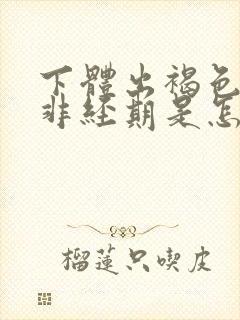 下體出褐色
非經期是怎
榴蓮只喫皮